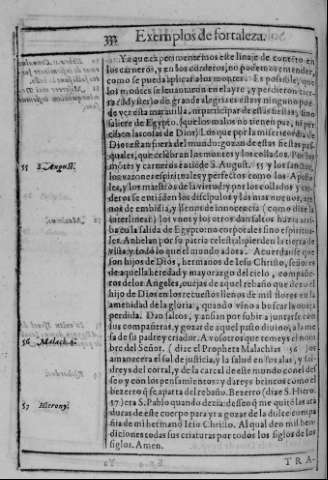 333 Exemplos de fortaleza.
Ya que acà no tenemos este linaje de contẽto en
los carneros, y en los corderos, no podemos entender,
como se pueda aplicar a los montes. Es possible, que
los montes se levantaron en el ayre, y perdieron tierra
(Mysterio de grande alegria es esta) y ninguno pue-
de ver esta maravilla, ni participar de estas fiestas, sino
saliere de Egypto.
Dios estan fuera del mundo: gozan de estas fiestas
quales, que celebran los montes y los collados. Por los
mõtes y carneros entiẽde S. August. 55 y los santos,
los varones espirituales y perfectos como los Aposto-
les, y los maestros de la virtud y por los collados y cor-
deros se entiẽden los discipulos y los mas nuevos,
nos de embidia, y llenos de innocencia (como dize la
interlineal) los unos y los otros dan saltos
ba en la salida de Egypto: no corporales sino espiritua-
les. Anhelan por su patria celestial, pierden la tierra de
vista y todo lo que el mundo adora. Acuerdanse que
son hijos de Dios, hermanos de Iesu Christo, señores
de aquella heredad y mayorazgo del cielo, compañe-
ros de los Angeles, ovejas de aquel rebaño que dexo el
hijo de Dios en los recuestos llenos de mil flores en la
amenidad de la gloria, quando vino a buscar la oveja
perdida. Dan saltos, y ansian por subir a juntarse con
sus compañeros, y gozar de aquel pasto divino, a la me-
sa de su padre y criador. A vosotros que temeys el nom-
bre del Señor. (dize el Propheta Malachias 56 )os
amanecera el sol de justicia, y la salud en sus alas, y sal-
dreys del corral, y de la carcel de este mundo con el des-
seo y con los pensamientos: y dareys brincos como el
bezerro q̃ se aparta del rebaño. Bezerro (dize S. Hiero.
57) era S. Pablo quando dezia: desseo q̃ me quite las ata
duras de este cuerpo para yr a gozar de la dulce compa
ñia de mi hermano Iesu Christo. Al qual den mil ben-
diciones todas sus criaturas por todos los siglos de los
siglos. Amen.
55 S. August.
56 Malach. 4.
57 Hierony.
TRA-